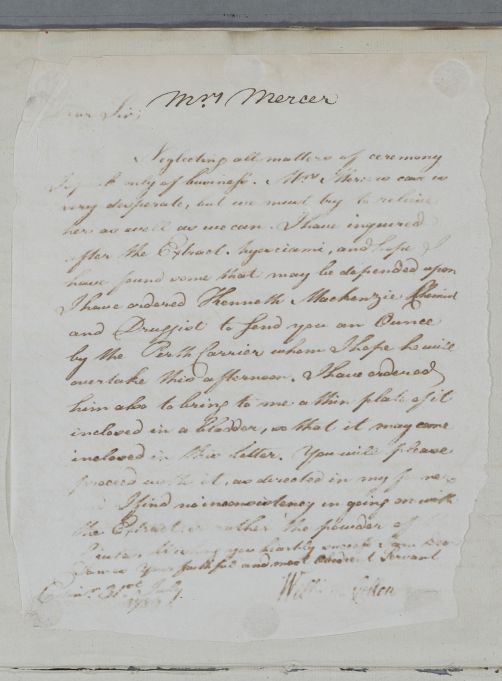 Mrs Mercer
Dear Sir,
Neglecting all matters of ceremony
I speak only of business. Mrs Mercers case is
very desperate, but we must try to relieve
her as well as we can. I have inquired
after the Extract. Hyosciami, and hope I
have found some that may be depended upon
I have ordered Kenneth Mackenzie Chemist
and Druggist to send you an Ounce
by the Perth Carrier whom I hope he will
overtake this afternoon. I have ordered
him also to bring to me a thin plate of it
inclosed in a bladder, so that it may come
inclosed in this letter. You will please
proceed with it, as directed in my
I find no inconsistency in going on with
the Extract or rather the powder of
you heartily I am Dear
Your faithful and most obedient Servant
July
William Cullen